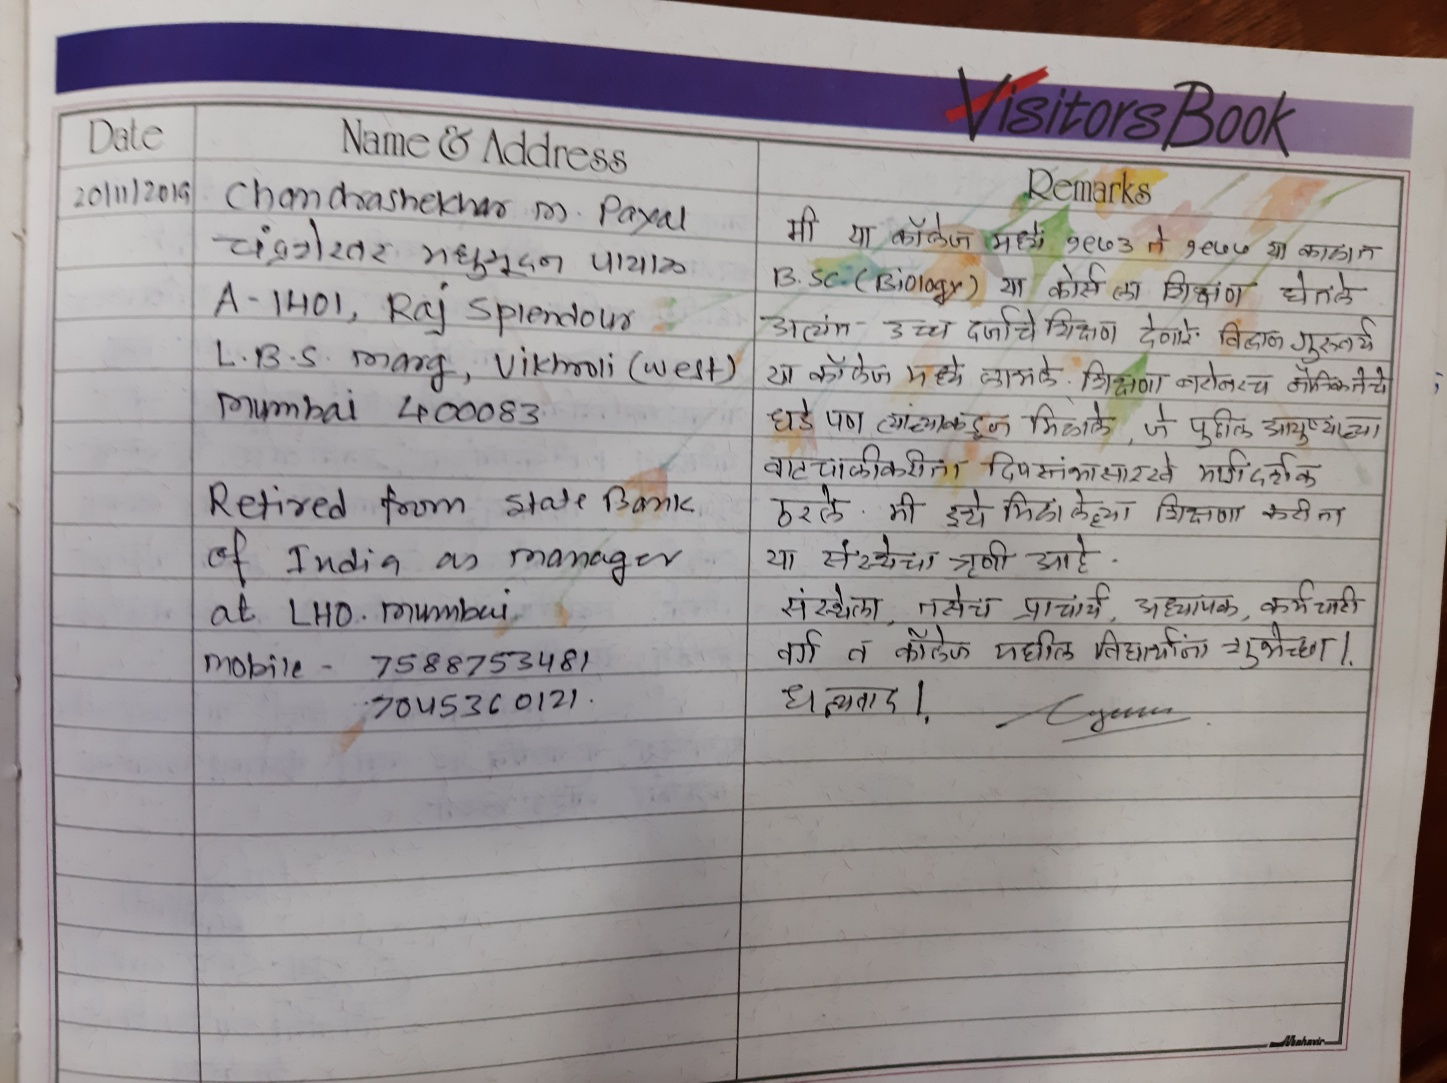 Visitors Book
Date
Name & Address
Remarks
20/11/2019
Chandrashekhar m. Payal
चंद्रशेखर मधुसूदन पायाळ
A-1401, Raj Splendour
L.B.S. marg, Vikhroli (west)
mumbai 400083
Retired from State Bank
of India as manager
at LHO. mumbai
mobile - 7588753481
7045360121.
मी या कॉलेज मध्ये १९७३ ते १९७७ या काळात
B.Sc. (Biology) या कोर्स ला शिक्षण घेतले
अत्यंत उच्च दर्जाचे शिक्षण देणारे विद्वान गुरुवर्य
या कॉलेज मध्ये लाभले. शिक्षणा बरोबरच नैतिकतेचे
धडे पण त्यांच्याकडून मिळाले, जे पुढील आयुष्याच्या
वाटचालीकरीता दिपस्तंभासारखे मार्गदर्शक
ठरले. मी इथे मिळालेल्या शिक्षणा करीता
या संस्थेचा ऋणी आहे.
संस्थेला, तसेच प्राचार्य, अध्यापक, कर्मचारी
वर्ग व कॉलेज मधील विद्यार्थांना शुभेच्छा!.
धन्यवाद!.
Mahavir